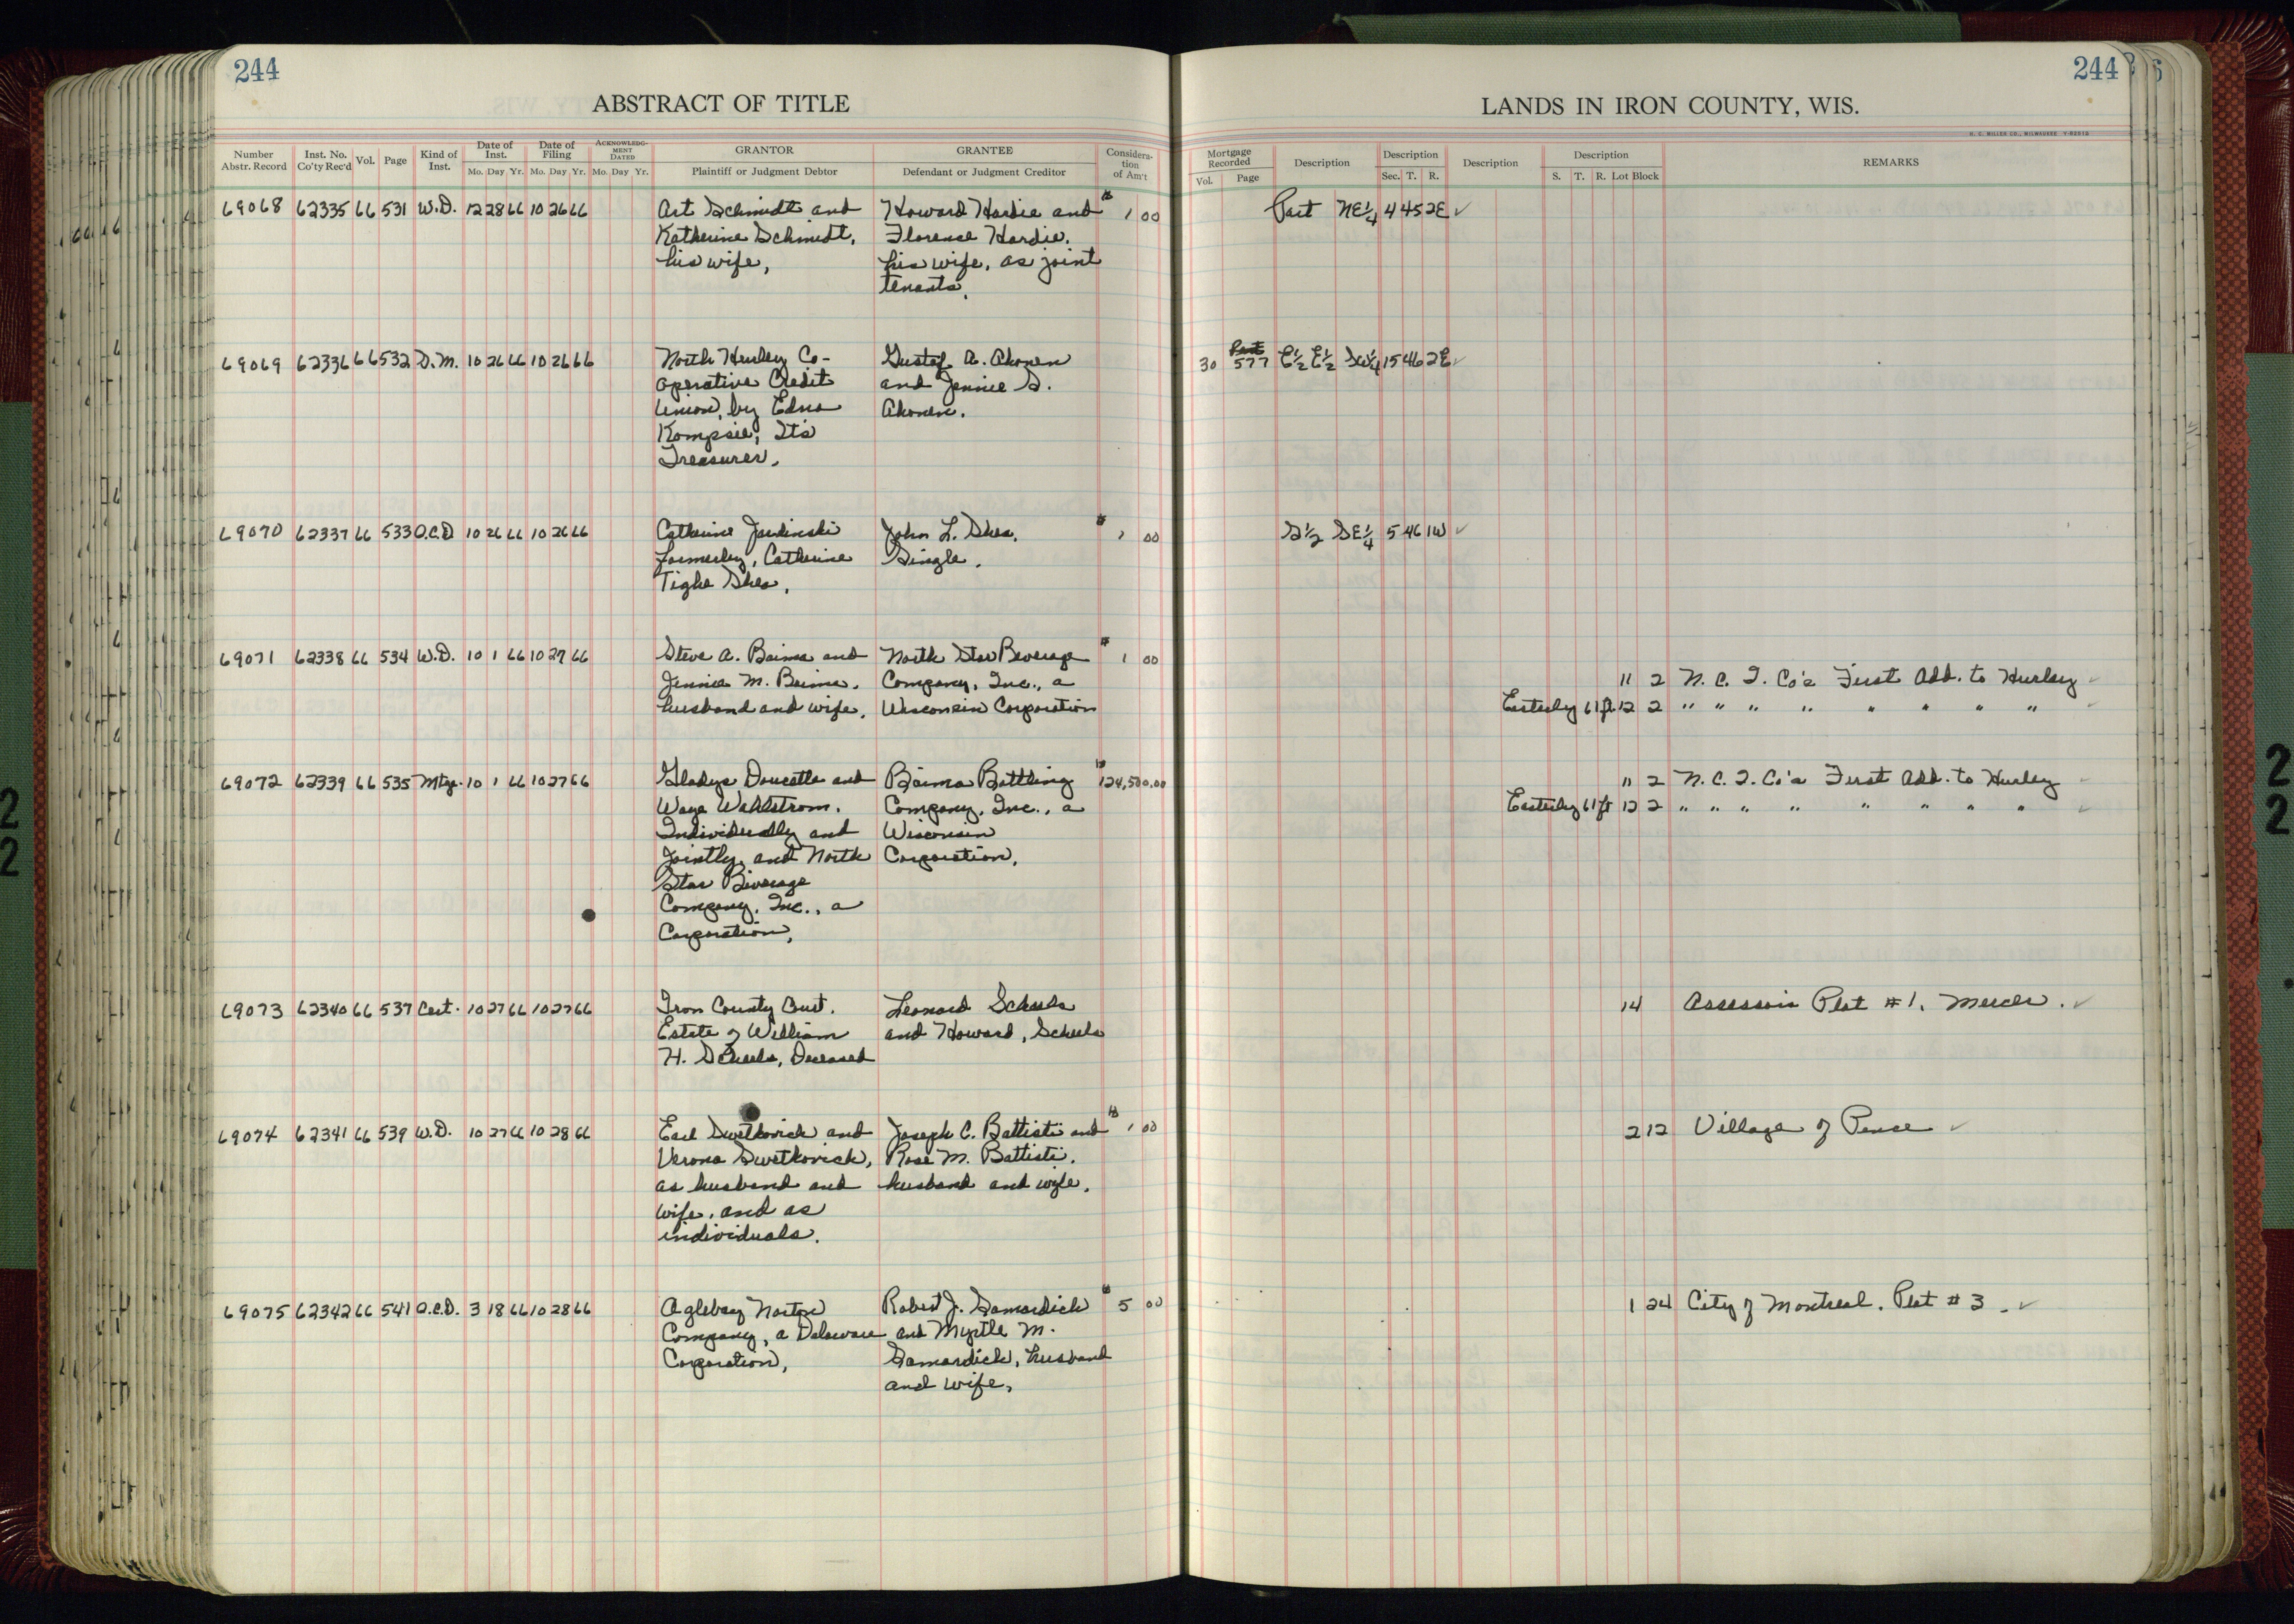 244
ABSTRACT OF TITLE
Number Abstr. Record
Inst. No. Co'ty Rec'd
Vol.
Page
Kind of Inst.
Date of Inst.
Mo. Day Yr.
Date of Filing
Mo. Day Yr.
ACKNOWLEDGMENT DATED
Mo. Day Yr.
GRANTOR
Plaintiff or Judgment Debtor
GRANTEE
Defendant or Judgment Creditor
Consideration of Am't
69068 62335 66 531 W.D. 12 28 66 10 26 66 Art Schmidt and Howard Hardie and $ 1 00
Katherine Schmidt, Florence Hardie,
his wife, his wife, as joint
tenants.
69069 62336 66 532 D.M. 10 26 66 10 26 66 North Hurley Co- Gustaf A. Ahonen
operative Credit and Jennie S.
Union, by Edna Ahonen.
Its
Treasurer.
69070 62337 66 533 Q.C.D 10 26 66 10 26 66 Catherine John L. Shea, $ 1 00
formerly, Catherine Single.
Tighe Shea.
69071 62338 66 534 W.D. 10 1 66 10 27 66 Steve A. Baima and North Star Beverage $ 1 00
Jennie M. Baima, Company, Inc., a
husband and wife, Wisconsin Corporation
69072 62339 66 535 Mtge. 10 1 66 10 27 66 Gladys Doucette and Baima Bottling $ 124,500.00
Waye Wahlstrom, Company, Inc., a
Individually and Wisconsin
Jointly, and North Corporation.
Star Beverage
Company, Inc., a
Corporation,
69073 62340 66 537 Cert. 10 27 66 10 27 66 Iron County Court. Leonard Scheels
Estate of William and Howard, Scheels
H. Scheels, Deceased
69074 62341 66 539 W.D. 10 27 66 10 28 66 Earl Swetkovich and Joseph C. Battisti and $ 1 00
Verona Swetkovich, Rose M. Battisti,
as husband and husband and wife.
wife, and as
individuals.
69075 62342 66 541 Q.C.D. 3 18 66 10 28 66 Oglebay Norton Robert J. Samardich $ 5 00
Company, a Delaware and Myrtle M.
Corporation, Samardich, husband
and wife.
244
LANDS IN IRON COUNTY, WIS.
H. C. MILLER CO., MILWAUKEE
Mortgage Recorded
Vol. Page
Description
Description
Sec. T. R.
Description
Description
S. T. R. Lot Block
REMARKS
Part NE¼ 4 45 2E ✓
30 577 E½ E½ SW¼ 15 46 2E ✓
S½ SE¼ 5 46 1W ✓
11 2 N. C. I. Co's First Add. to Hurley ✓
Easterly 61 ft 12 2 " " " " " " " " ✓
11 2 N. C. I. Co's First Add. to Hurley ✓
Easterly 61 ft 12 2 " " " " " " " " ✓
14 Assessors Plat #1, Mercer. ✓
2 12 Village of Pence ✓
1 24 City of Montreal. Plat #3. ✓
2
2
2
2